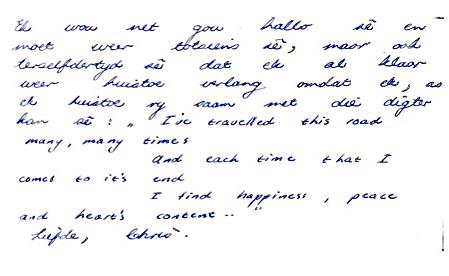 Ek wou net gou hallo sê en
moet weer totsiens sê, maar ook
terselfdertyd sê dat ek al klaar
weer huistoe verlang omdat ek, as
ek huistoe ry saam met die digter
kan sê: „ I've travelled this road
many, many times
And each time that I
comes to it's end
I find happiness, peace
and heart's content.."
Liefde, Chris.